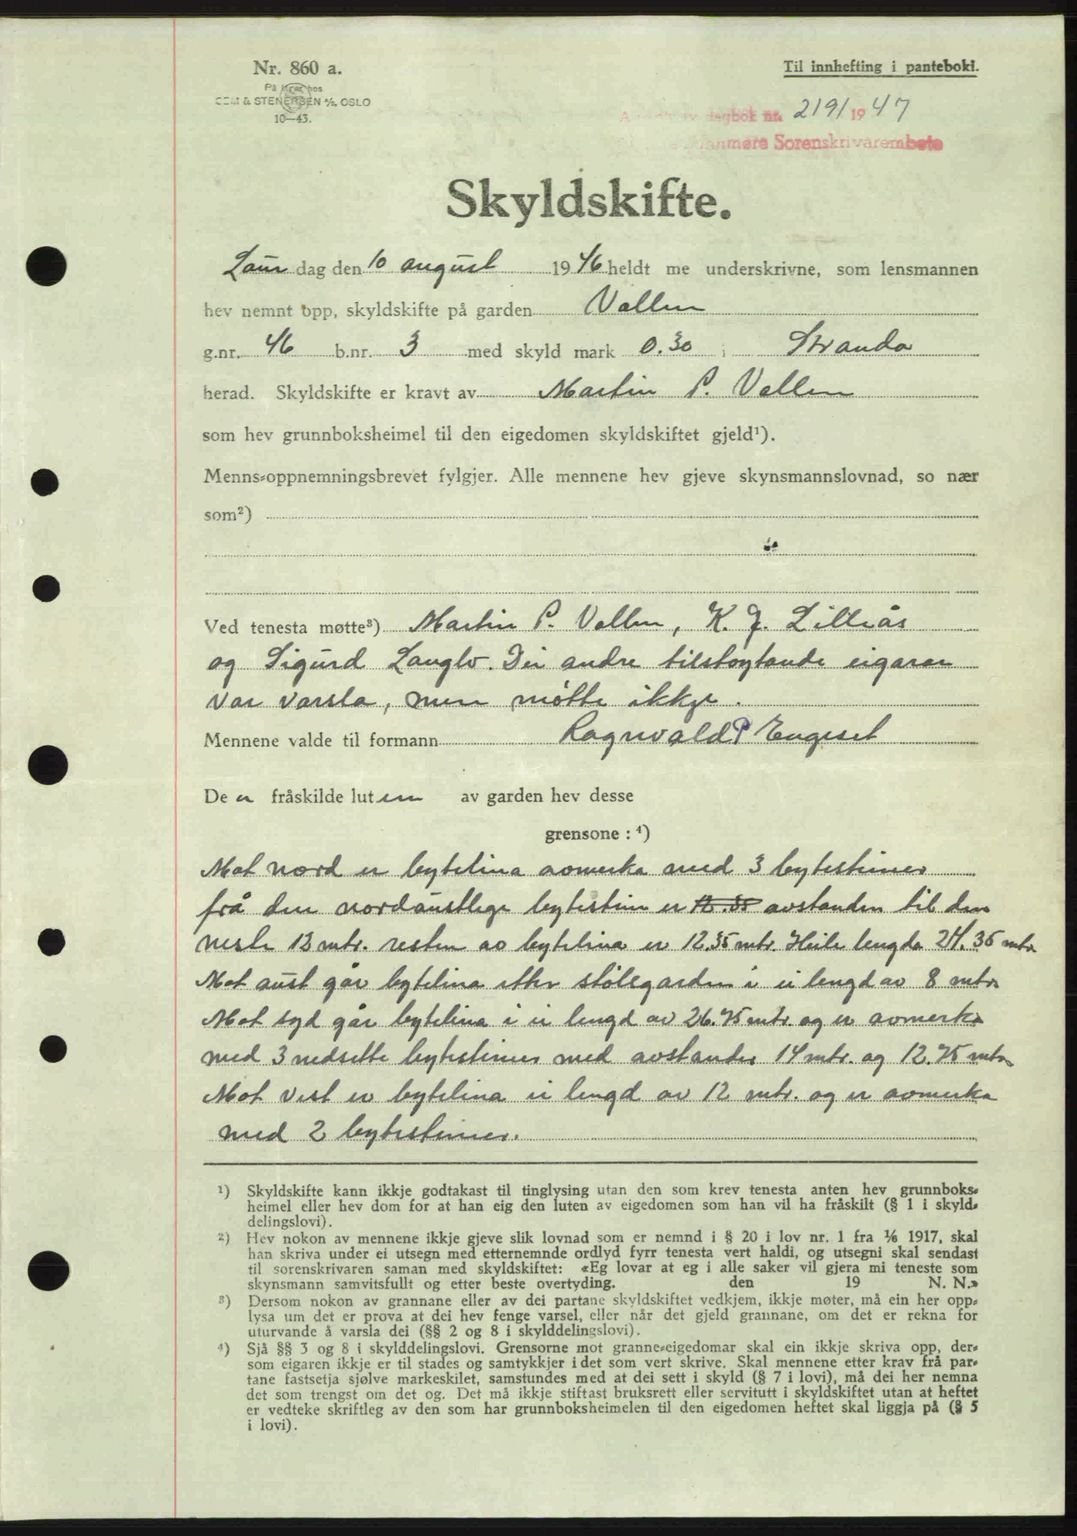 Nr. 860 a.
Til innhefting i pantebok!.
På lager hos
SEM & STENERSEN A/S, OSLO
10—43.
dagbok nr. 2191 1947
Sorenskrivarembete
Skyldskifte.
Laur dag den 10 august 1946 heldt me underskrivne, som lensmannen
hev nemnt opp, skyldskifte på garden Vallen
g.nr. 46 b.nr. 3 med skyld mark 0.30 i Stranda
herad. Skyldskifte er kravt av Martin P. Vallen
som hev grunnboksheimel til den eigedomen skyldskiftet gjeld¹).
Menns-oppnemningsbrevet fylgjer. Alle mennene hev gjeve skynsmannslovnad, so nær
som²)
Ved tenesta møtte³) Martin P. Vallen, K. J. Lilleås
og Sigurd Langlo. Dei andre tilstøytande eigarar
var varsla, men møtte ikkje.
Mennene valde til formann Ragnvald P Engeset
De er fråskilde luten av garden hev desse
grensone : ⁴)
Mot nord er bytelina avmerka med 3 bytesteiner
frå den nordaustlege bytestein er 12.35 avstanden til den
neste 12 mtr. resten av bytelina er 12.35 mtr. Heile lengda 24.35 mtr
Mot aust går bytelina etter stølsgarden i ei lengd av 8 mtr.
Mot syd går bytelina i ei lengd av 26.75 mtr. og er avmerka
med 3 nedsette bytesteiner med avstander 14 mtr. og 12.75 mtr.
Mot vest er bytelina ei lengd av 12 mtr. og er avmerka
med 2 bytesteiner.
¹) Skyldskifte kann ikkje godtakast til tinglysing utan den som krev tenesta anten hev grunnboks-
heimel eller hev dom for at han eig den luten av eigedomen som han vil ha fråskilt (§ 1 i skyld-
delingslovi).
²) Hev nokon av mennene ikkje gjeve slik lovnad som er nemnd i § 20 i lov nr. 1 fra 1/6 1917, skal
han skriva under ei utsegn med etternemnde ordlyd fyrr tenesta vert haldi, og utsegni skal sendast
til sorenskrivaren saman med skyldskiftet: «Eg lovar at eg i alle saker vil gjera mi teneste som
skynsmann samvitsfullt og etter beste overtyding. den 19 N. N.»
³) Dersom nokon av grannane eller av dei partane skyldskiftet vedkjem, ikkje møter, må ein her opp-
lysa um det er prova at dei hev fenge varsel, eller når det gjeld grannane, om det er rekna for
uturvande å varsla dei (§§ 2 og 8 i skylddelingslovi).
⁴) Sjå §§ 3 og 8 i skylddelingslovi. Grensorne mot granne-eigedomar skal ein ikkje skriva opp, der-
som eigaren ikkje er til stades og samtykkjer i det som vert skrive. Skal mennene etter krav frå par-
tane fastsetja sjølve markeskilet, samstundes med at dei sett i skyld (§ 7 i lovi), må dei her nemna
det som trengst om det og. Det må ikkje stiftast bruksrett eller servitutt i skyldskiftet utan at heftet
er vedteke skriftleg av den som har grunnboksheimelen til den eigedomen heftet skal liggja på (§ 5
i lovi).